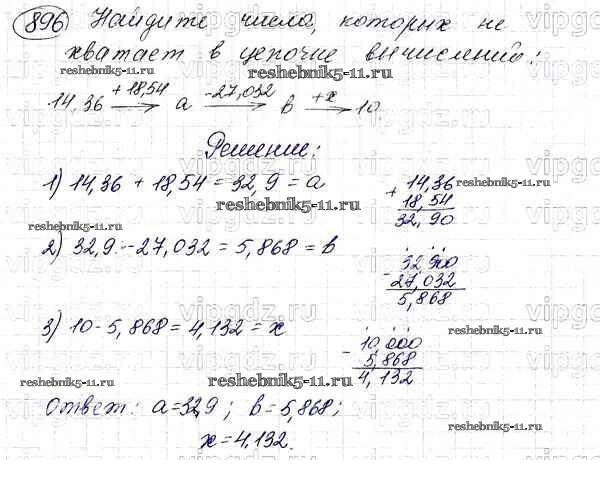 896 Найдите числа, которых не
хватает в цепочке вычислений:
reshebnik5-11.ru
14,36 +18,54 → a -27,032 → b +x → 10
Решение:
1) 14,36 + 18,54 = 32,9 = a
+ 14,36
18,54
32,90
reshebnik5-11.ru
reshebnik5-11.ru
reshebnik5-11.ru
2) 32,9 - 27,032 = 5,868 = b
- 32,900
27,032
5,868
3) 10 - 5,868 = 4,132 = x
- 10,000
5,868
4,132
reshebnik5-11.ru
reshebnik5-11.ru
Ответ: a = 32,9; b = 5,868;
x = 4,132.
reshebnik5-11.ru
vipgdz.ru